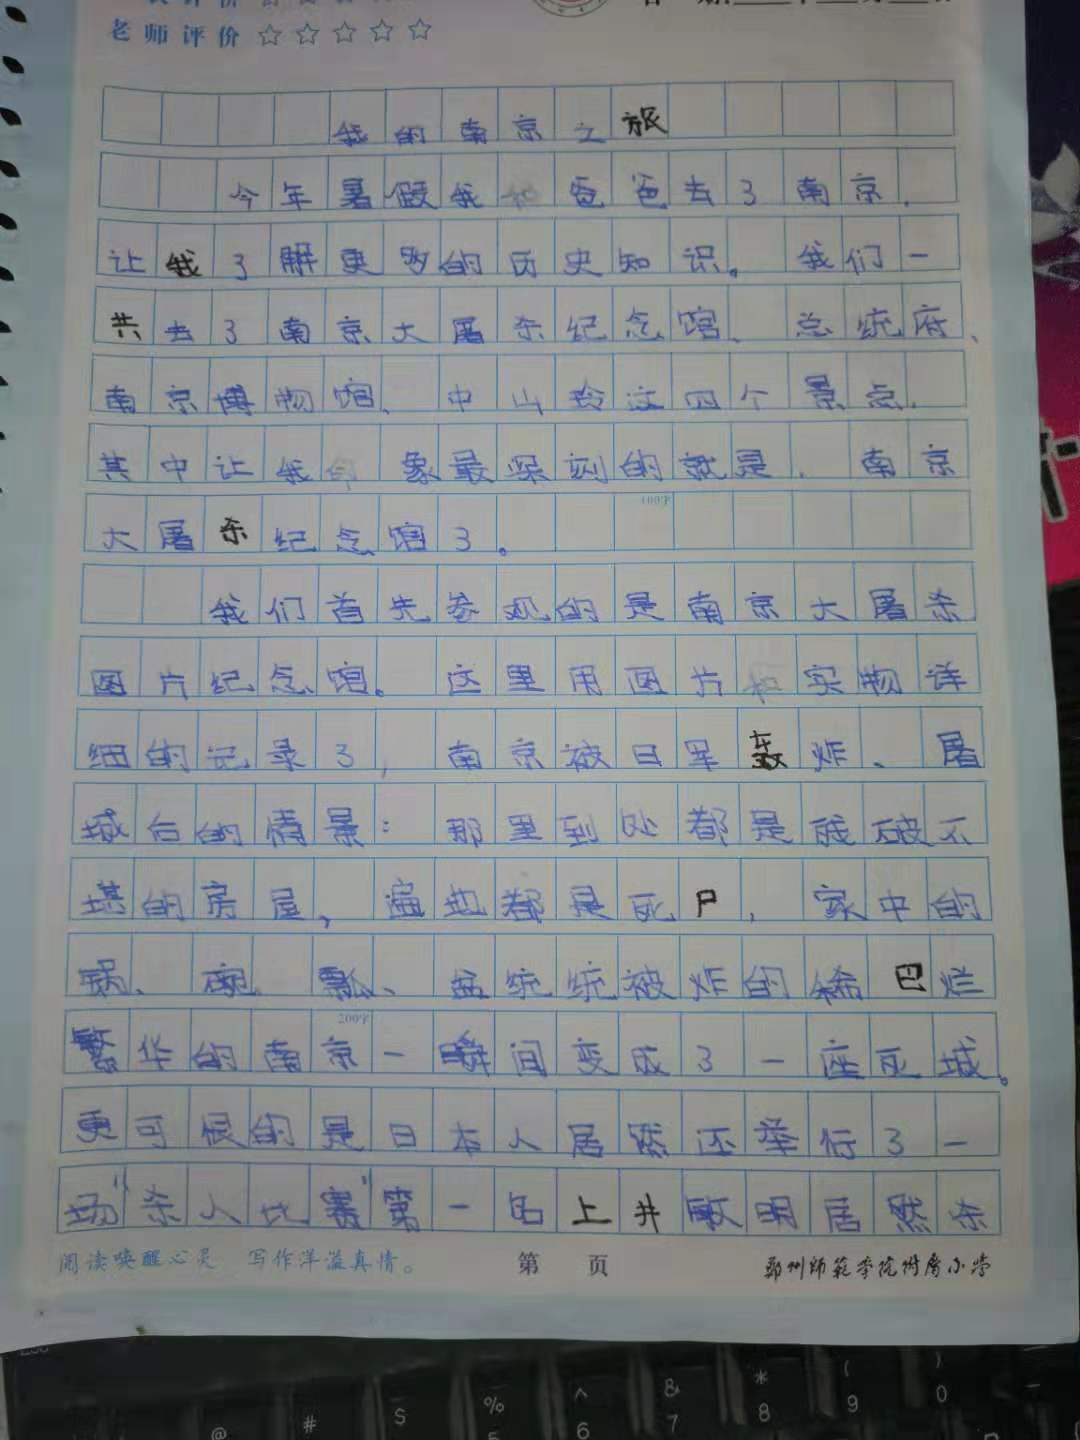 老师评价☆☆☆☆☆
我的南京之旅
今年暑假我和爸爸去了南京,
让我了解更多的历史知识。我们一
共去了南京大屠杀纪念馆、总统府、
南京博物馆、中山玲这四个景点,
其中让我印象最深刻的就是,南京
大屠杀纪念馆了。
100字
我们首先参观的是南京大屠杀
图片纪念馆。这里用图片和实物详
细的记录了,南京被日军轰炸、屠
城后的情景:那里到处都是残破不
堪的房屋,遍地都是死尸,家中的
锅、碗、瓢、盆统统被炸的稀巴烂
繁华的南京一瞬间变成了一座死城。
200字
更可恨的是日本人居然还举行了一
场"杀人比赛"第一名上井敏明居然杀
阅读唤醒心灵 写作洋溢真情。 第 页 郑州师范学院附属小学
@ # $ % 5 ^ 6 & 7 * 8 ( 9 ) 0